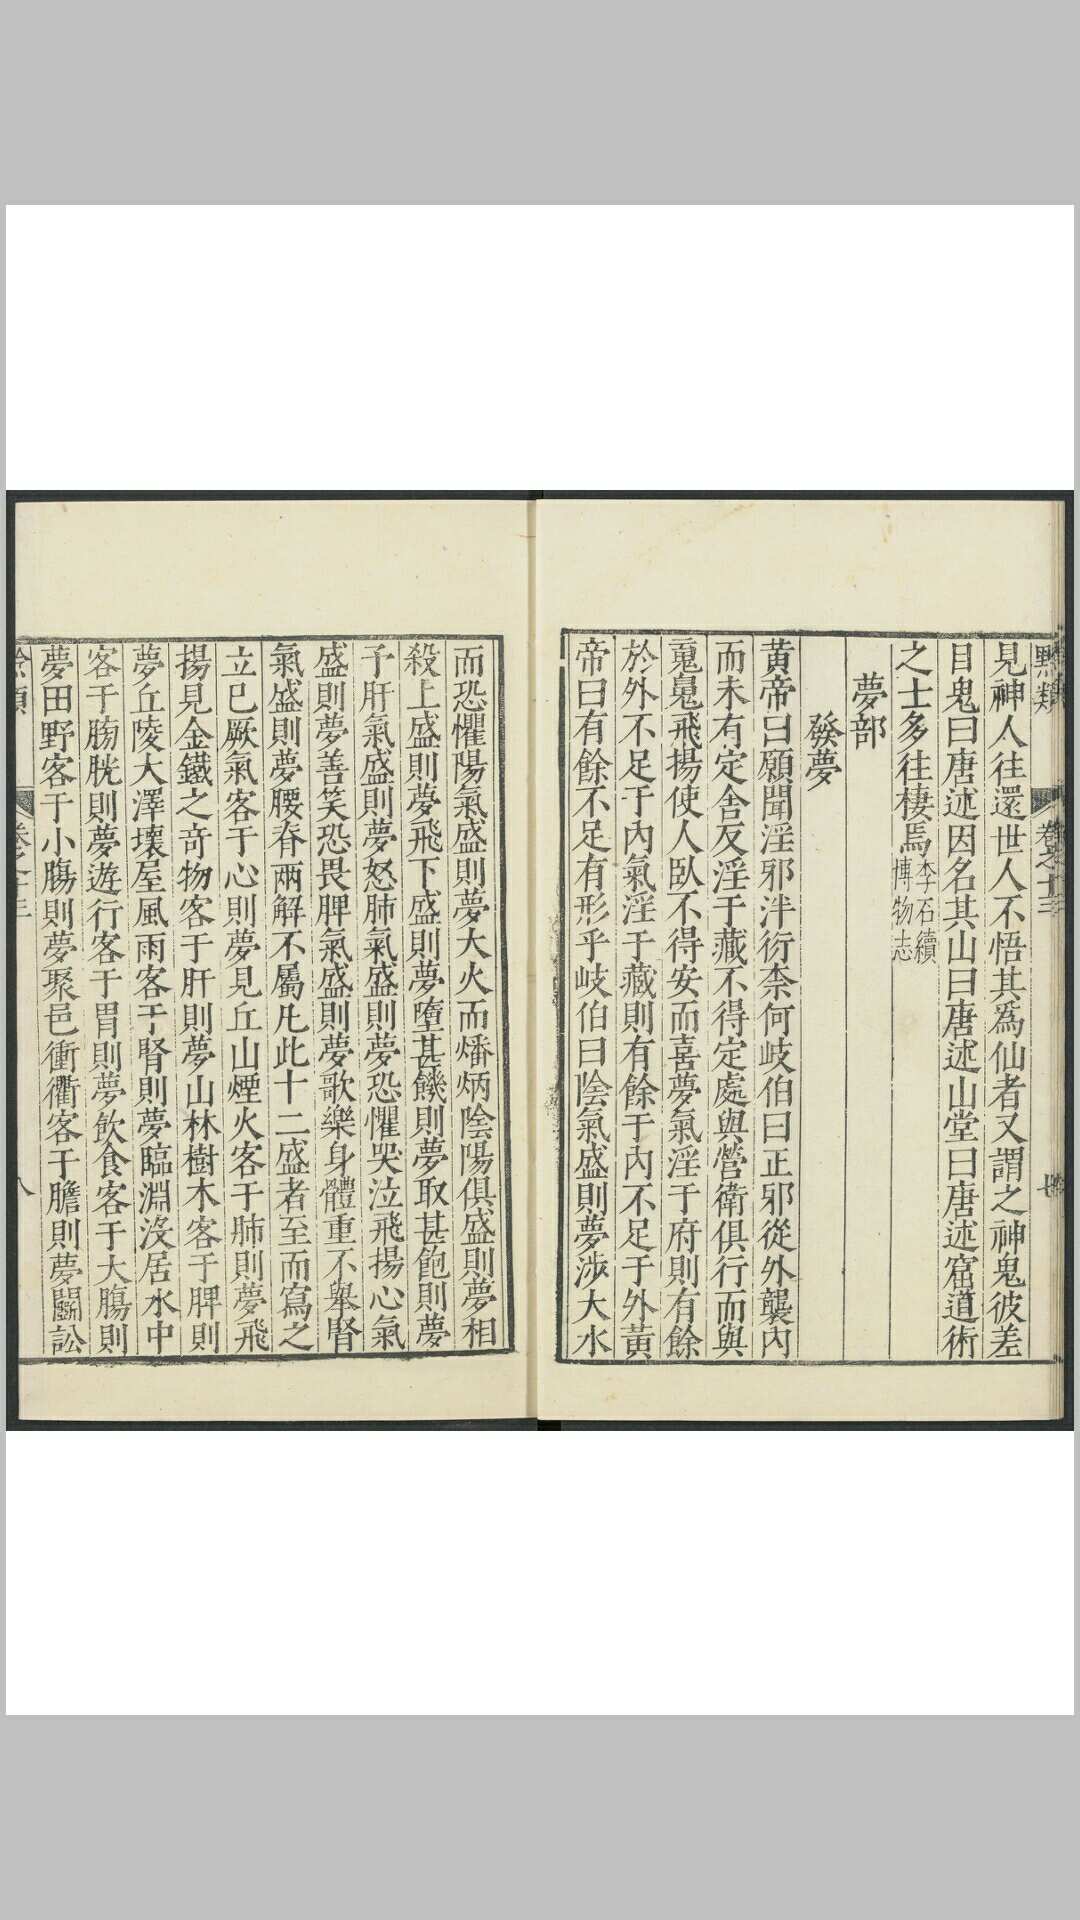 黔類
卷之十三
七
見神人往還世人不悟其爲仙者又謂之神鬼彼差
目鬼曰唐述因名其山曰唐述山堂曰唐述窟道術
之士多往棲焉李石續
博物志
夢部
發夢
黃帝曰願聞淫邪泮衍柰何岐伯曰正邪從外襲內
而未有定舍反淫于藏不得定處與營衛俱行而與
䰟魄飛揚使人臥不得安而喜夢氣淫于府則有餘
於外不足于內氣淫于藏則有餘于內不足于外黃
帝曰有餘不足有形乎岐伯曰陰氣盛則夢涉大水
而恐懼陽氣盛則夢大火而燔炳陰陽俱盛則夢相
殺上盛則夢飛下盛則夢墮甚饑則夢取甚飽則夢
予肝氣盛則夢怒肺氣盛則夢恐懼哭泣飛揚心氣
盛則夢善笑恐畏脾氣盛則夢歌樂身體重不舉腎
氣盛則夢腰脊兩解不屬凡此十二盛者至而寫之
立已厥氣客于心則夢見丘山煙火客于肺則夢飛
揚見金鐵之奇物客于肝則夢山林樹木客于脾則
夢丘陵大澤壞屋風雨客于腎則夢臨淵沒居水中
客于膀胱則夢遊行客于胃則夢飲食客于大腸則
夢田野客于小腸則夢聚邑衝衢客于膽則夢鬭訟
卷之十三
八